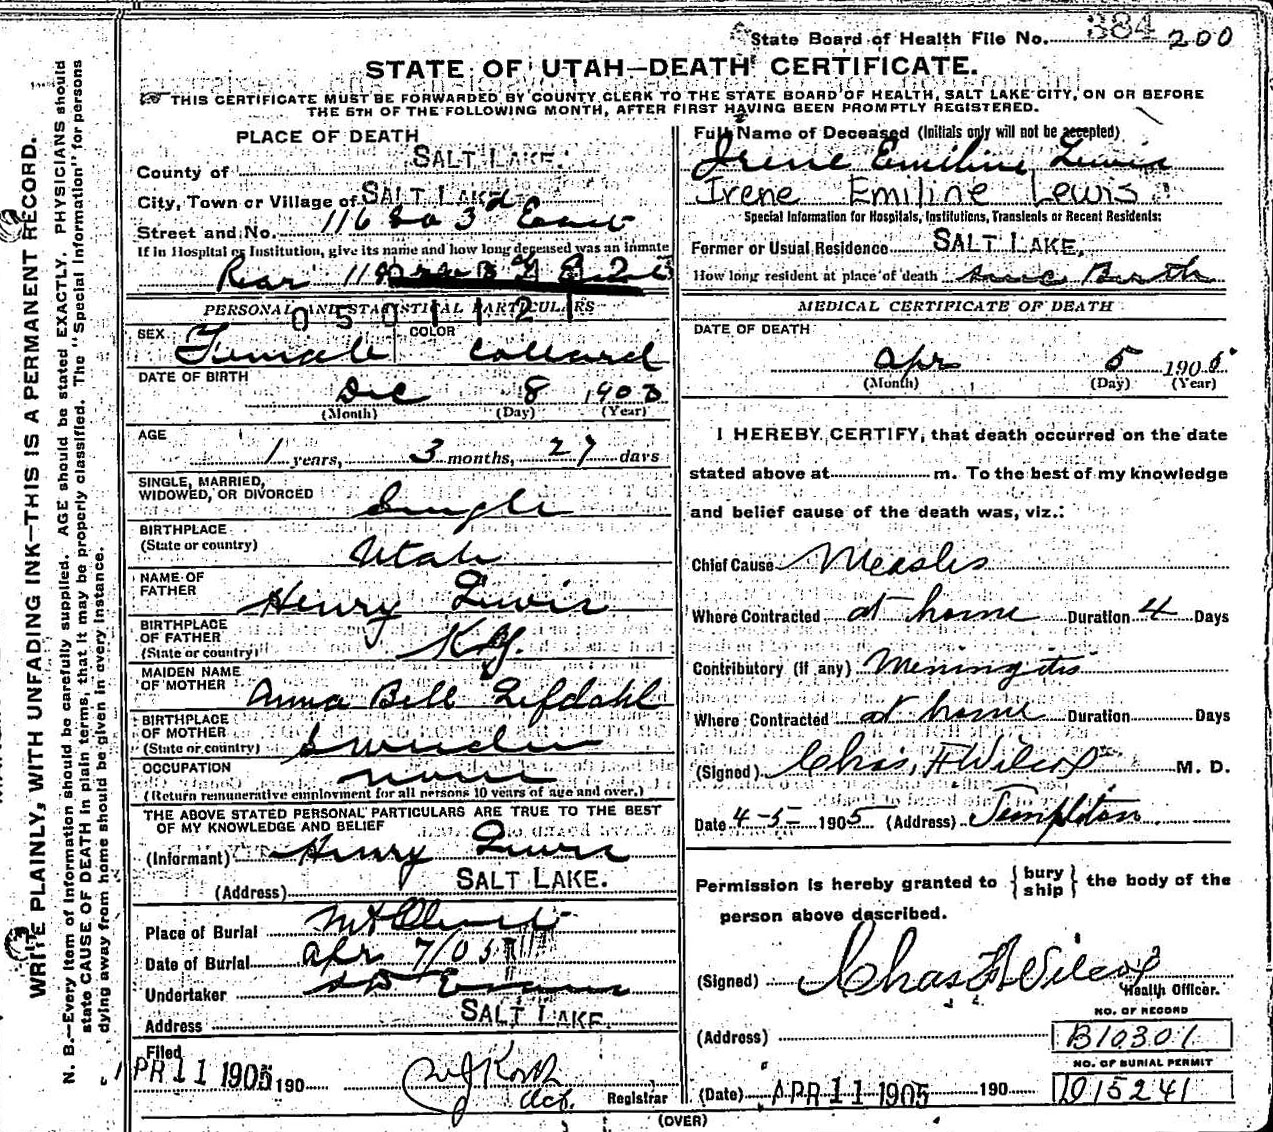 State Board of Health File No. 384 200
STATE OF UTAH—DEATH CERTIFICATE.
THIS CERTIFICATE MUST BE FORWARDED BY COUNTY CLERK TO THE STATE BOARD OF HEALTH, SALT LAKE CITY, ON OR BEFORE
THE 5TH OF THE FOLLOWING MONTH, AFTER FIRST HAVING BEEN PROMPTLY REGISTERED.
WRITE PLAINLY, WITH UNFADING INK—THIS IS A PERMANENT RECORD.
N. B.—Every item of information should be carefully supplied. AGE should be stated EXACTLY. PHYSICIANS should
state CAUSE OF DEATH in plain terms, that it may be properly classified. The "Special Information" for persons
dying away from home should be given in every instance.
PLACE OF DEATH
County of SALT LAKE.
City, Town or Village of SALT LAKE
Street and No. 116 So 3d East
If in Hospital or Institution, give its name and how long deceased was an inmate
Rear 118
PERSONAL AND STATISTICAL PARTICULARS
0 5 0 1 1 2 1
SEX Female COLOR Collard
DATE OF BIRTH
Dec 8 1903
(Month) (Day) (Year)
AGE
1 years, 3 months, 27 days
SINGLE, MARRIED,
WIDOWED, OR DIVORCED Single
BIRTHPLACE
(State or country) Utah
NAME OF
FATHER Henry Lewis
BIRTHPLACE
OF FATHER
(State or country) Ky.
MAIDEN NAME
OF MOTHER Anna Bell Lefdahl
BIRTHPLACE
OF MOTHER
(State or country) Sweden
OCCUPATION none
(Return remunerative employment for all persons 10 years of age and over.)
THE ABOVE STATED PERSONAL PARTICULARS ARE TRUE TO THE BEST
OF MY KNOWLEDGE AND BELIEF
(Informant) Henry Lewis
(Address) SALT LAKE.
Place of Burial Mt Olivet
Date of Burial Apr 7/05
Undertaker S D Evans
Address SALT LAKE.
Filed
APR 11 1905 190
Act. Registrar
Full Name of Deceased (Initials only will not be accepted)
Irene Emiline Lewis
Irene Emiline Lewis
Special Information for Hospitals, Institutions, Transients or Recent Residents:
Former or Usual Residence SALT LAKE,
How long resident at place of death since Birth
MEDICAL CERTIFICATE OF DEATH
DATE OF DEATH
Apr 5 1905
(Month) (Day) (Year)
I HEREBY CERTIFY, that death occurred on the date
stated above at m. To the best of my knowledge
and belief cause of the death was, viz.:
Chief Cause Measles
Where Contracted at home Duration 4 Days
Contributory (if any) Meningitis
Where Contracted at home Duration Days
(Signed) Chas. F Wilcox M. D.
Date 4-5- 1905 (Address) Templeton
Permission is hereby granted to { bury
ship } the body of the
person above described.
(Signed) Chas F Wilcox
Health Officer.
NO. OF RECORD
(Address) B10301
NO. OF BURIAL PERMIT
(Date) APR 11 1905 190 D15241
(OVER)